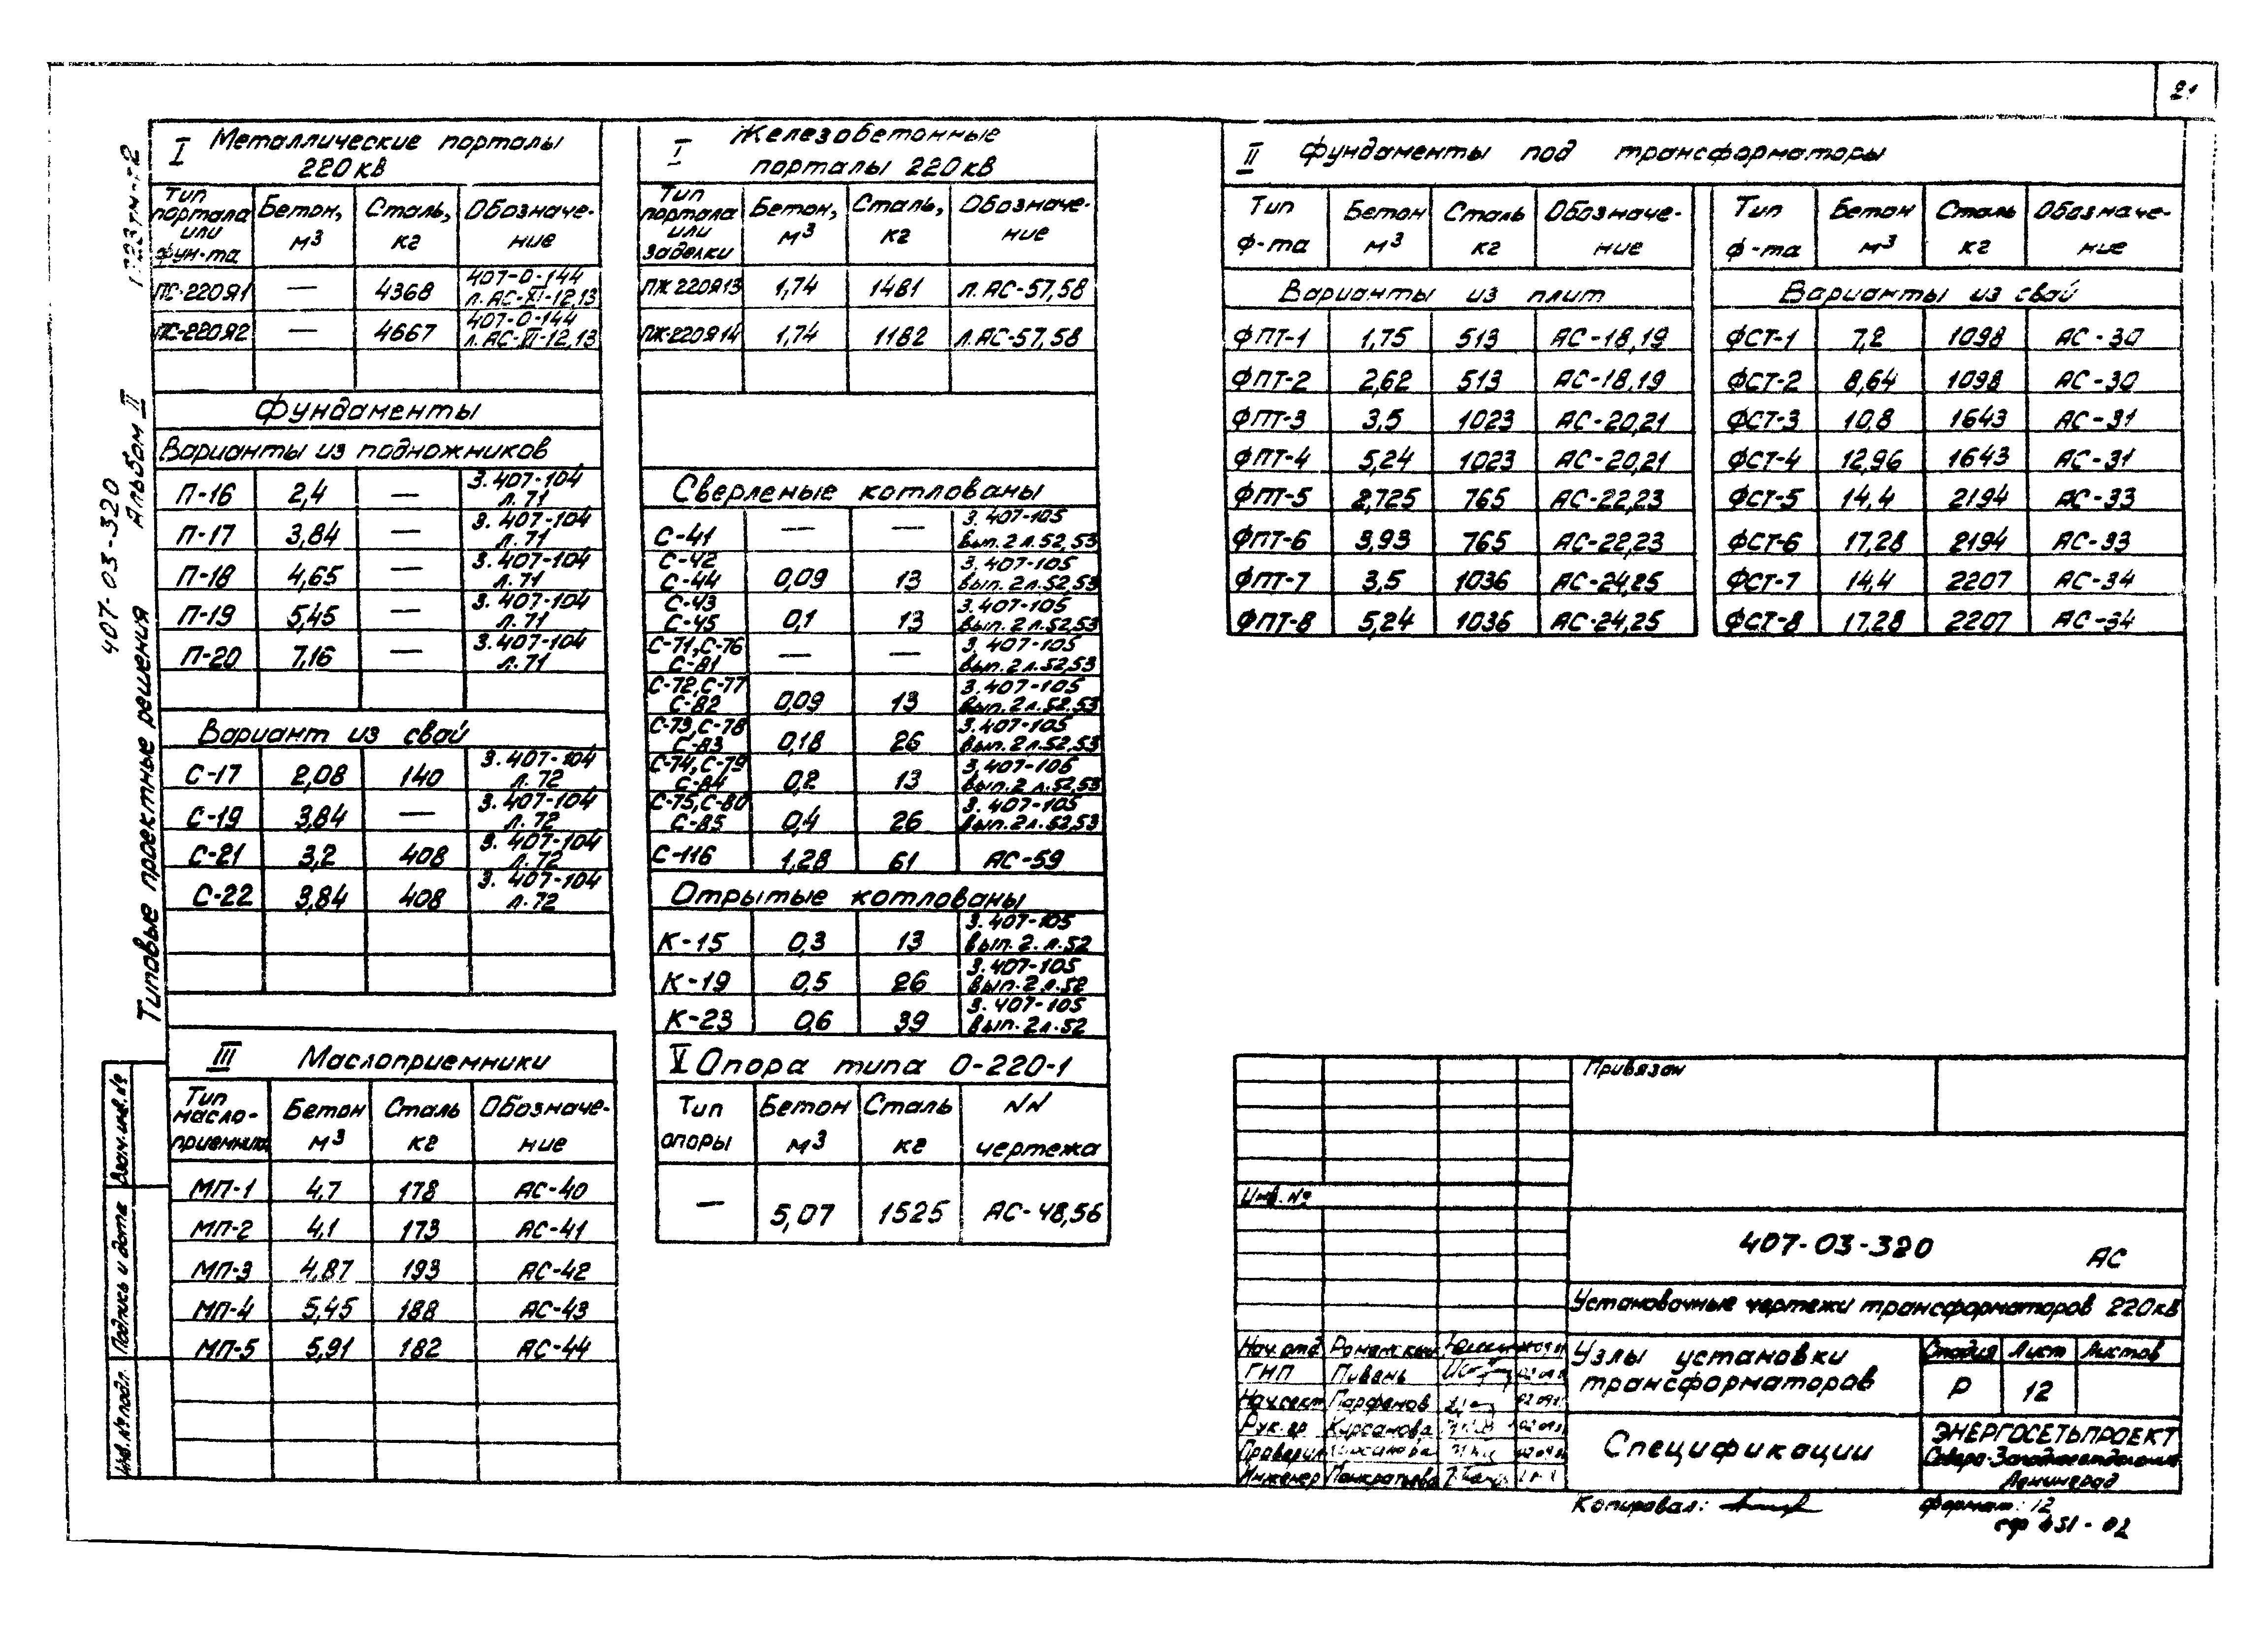 21
407-03-320
Типовые проектные решения Альбом II
I Металлические порталы
220 кВ
Тип портала или фун-та | Бетон, м³ | Сталь, кг | Обозначение
ПС-220Я1 | — | 4368 | 407-0-144 л. АС-XI-12,13
ПС-220Я2 | — | 4667 | 407-0-144 л. АС-XI-12,13
Фундаменты
Варианты из подножников
П-16 | 2,4 | — | 3.407-104 л.71
П-17 | 3,84 | — | 3.407-104 л.71
П-18 | 4,65 | — | 3.407-104 л.71
П-19 | 5,45 | — | 3.407-104 л.71
П-20 | 7,16 | — | 3.407-104 л.71
Вариант из свай
С-17 | 2,08 | 140 | 3.407-104 л.72
С-19 | 3,84 | — | 3.407-104 л.72
С-21 | 3,2 | 408 | 3.407-104 л.72
С-22 | 3,84 | 408 | 3.407-104 л.72
III Маслоприемники
Тип масло-приемника | Бетон м³ | Сталь кг | Обозначе-ние
МП-1 | 4,7 | 178 | АС-40
МП-2 | 4,1 | 173 | АС-41
МП-3 | 4,87 | 193 | АС-42
МП-4 | 5,45 | 188 | АС-43
МП-5 | 5,91 | 182 | АС-44
I Железобетонные
порталы 220кВ
Тип портала или заделки | Бетон, м³ | Сталь, кг | Обозначе-ние
ПЖ 220Я13 | 1,74 | 1481 | л. АС-57,58
ПЖ-220Я14 | 1,74 | 1182 | л. АС-57,58
Сверленые котлованы
С-41 | — | — | 3.407-105 вып.2 л.52,53
С-42 С-44 | 0,09 | 13 | 3.407-105 вып.2 л.52,53
С-43 С-45 | 0,1 | 13 | 3.407-105 вып.2 л.52,53
С-71,С-76 С-81 | — | — | 3.407-105 вып.2 л.52,53
С-72,С-77 С-82 | 0,09 | 13 | 3.407-105 вып.2 л.52,53
С-73,С-78 С-83 | 0,18 | 26 | 3.407-105 вып.2 л.52,53
С-74,С-79 С-84 | 0,2 | 13 | 3.407-105 вып.2 л.52,53
С-75,С-80 С-85 | 0,4 | 26 | 3.407-105 вып.2 л.52,53
С-116 | 1,28 | 61 | АС-59
Открытые котлованы
К-15 | 0,3 | 13 | 3.407-105 вып.2. л.52
К-19 | 0,5 | 26 | 3.407-105 вып.2 л.52
К-23 | 0,6 | 39 | 3.407-105 вып.2 л.52
V Опора типа О-220-1
Тип опоры | Бетон м³ | Сталь кг | NN чертежа
— | 5,07 | 1525 | АС-48,56
II Фундаменты под трансформаторы
Тип ф-та | Бетон м³ | Сталь кг | Обозначе-ние | Тип ф-та | Бетон м³ | Сталь кг | Обозначе-ние
Варианты из плит | Варианты из свай
ФПТ-1 | 1,75 | 513 | АС-18,19 | ФСТ-1 | 7,2 | 1098 | АС-30
ФПТ-2 | 2,62 | 513 | АС-18,19 | ФСТ-2 | 8,64 | 1098 | АС-30
ФПТ-3 | 3,5 | 1023 | АС-20,21 | ФСТ-3 | 10,8 | 1643 | АС-31
ФПТ-4 | 5,24 | 1023 | АС-20,21 | ФСТ-4 | 12,96 | 1643 | АС-31
ФПТ-5 | 2,725 | 765 | АС-22,23 | ФСТ-5 | 14,4 | 2194 | АС-33
ФПТ-6 | 3,93 | 765 | АС-22,23 | ФСТ-6 | 17,28 | 2194 | АС-33
ФПТ-7 | 3,5 | 1036 | АС-24,25 | ФСТ-7 | 14,4 | 2207 | АС-34
ФПТ-8 | 5,24 | 1036 | АС-24,25 | ФСТ-8 | 17,28 | 2207 | АС-34
Взам.инв.№
Подпись и дата
Инв.№ подл.
Привязан
Инв.№
407-03-320 АС
Установочные чертежи трансформаторов 220кВ
Нач.отд. Роменский
ГНП Пивень
Нач.сект Парфенов
Рук.гр Курсанова
Проверил Курсанова
Инженер Панкратьева
Узлы установки
трансформаторов
Стадия | Лист | Листов
Р | 12
Спецификации
ЭНЕРГОСЕТЬПРОЕКТ
Северо-Западное отделение
Ленинград
Копировал:
Формат: 12
сф 451-02